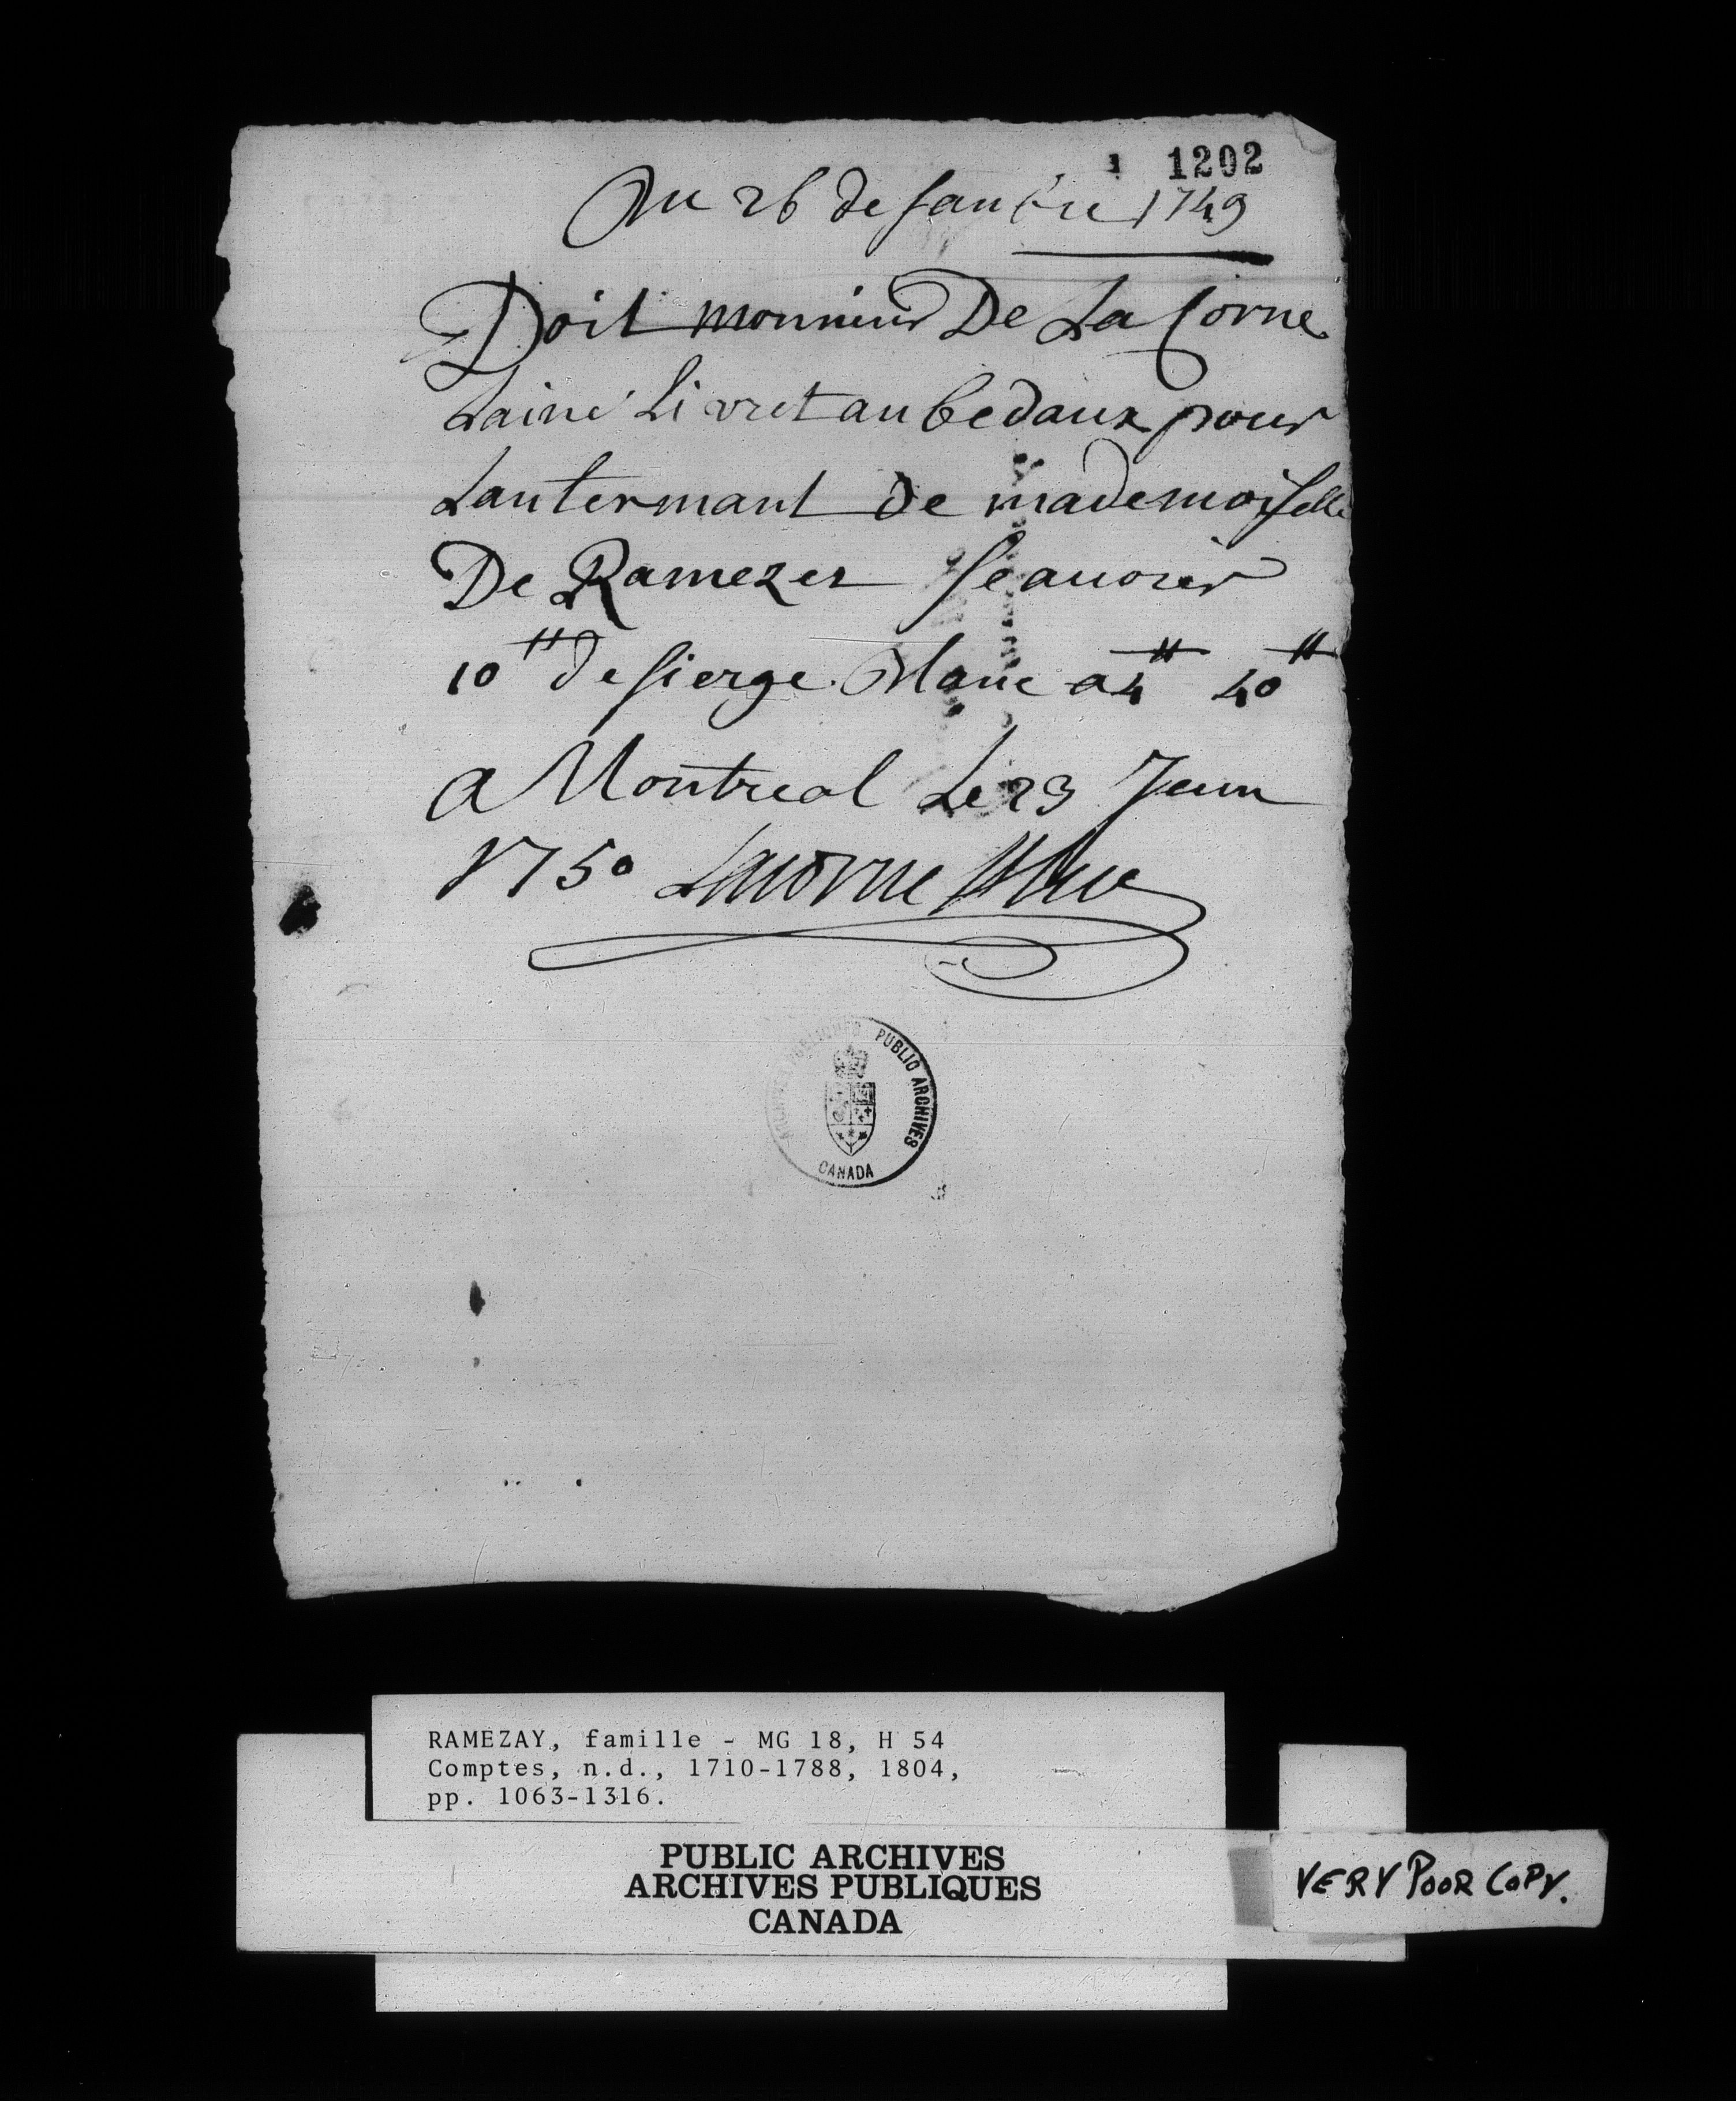 1202
Du 26 de Janvie 1749
Doit monsieur De La Corne
Lainé Livret au bedaux pour
Lantermant de mademoiselle
De Ramezer Seavoier
10# de sierge Blanc a 4# 40#
a Montreal Le 23 Juin
1750 Lacorne
ARCHIVES PUBLIQUES PUBLIC ARCHIVES
CANADA
RAMEZAY, famille - MG 18, H 54
Comptes, n.d., 1710-1788, 1804,
pp. 1063-1316.
PUBLIC ARCHIVES
ARCHIVES PUBLIQUES
CANADA
VERY POOR COPY.